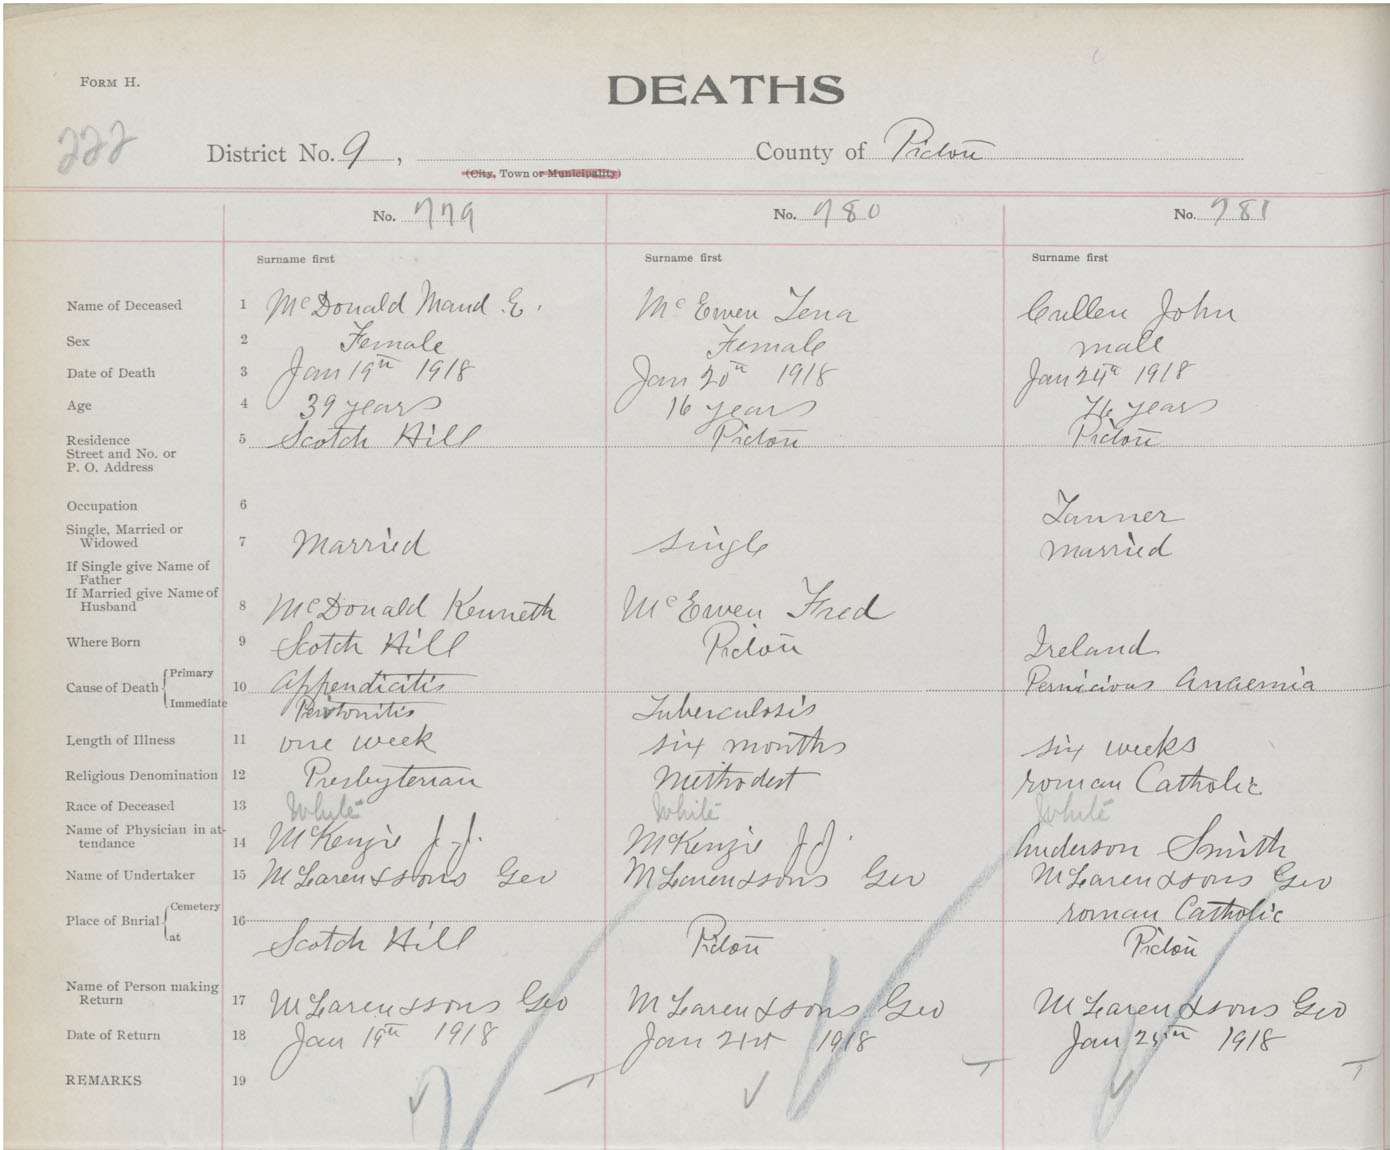 FORM H.
DEATHS
222
District No. 9 ,
County of Pictou
(City, Town or Municipality)
No. 779
No. 780
No. 781
Surname first
Surname first
Surname first
Name of Deceased 1 McDonald Maud E. McEwen Lena Cullen John
Sex 2 Female Female male
Date of Death 3 Jan 19th 1918 Jan 20th 1918 Jan 24th 1918
Age 4 39 years 16 years 76 years
Residence 5 Scotch Hill Pictou Pictou
Street and No. or
P. O. Address
Occupation 6 Tanner
Single, Married or
Widowed 7 Married single married
If Single give Name of
Father
If Married give Name of
Husband 8 McDonald Kenneth McEwen Fred
Where Born 9 Scotch Hill Pictou Ireland
Cause of Death Primary 10 Appendicitis Pernicious Anaemia
Immediate Peritonitis Tuberculosis
Length of Illness 11 one week six months six weeks
Religious Denomination 12 Presbyterian Methodest roman Catholic
Race of Deceased 13 White White White
Name of Physician in at-
tendance 14 McKenzie J.J. McKenzie J.J. Anderson Smith
Name of Undertaker 15 McLaren & sons Geo McLaren & sons Geo McLaren & sons Geo
Place of Burial Cemetery 16 roman Catholic
at Scotch Hill Pictou Pictou
Name of Person making
Return 17 McLaren & sons Geo McLaren & sons Geo McLaren & sons Geo
Date of Return 18 Jan 19th 1918 Jan 21st 1918 Jan 25th 1918
REMARKS 19